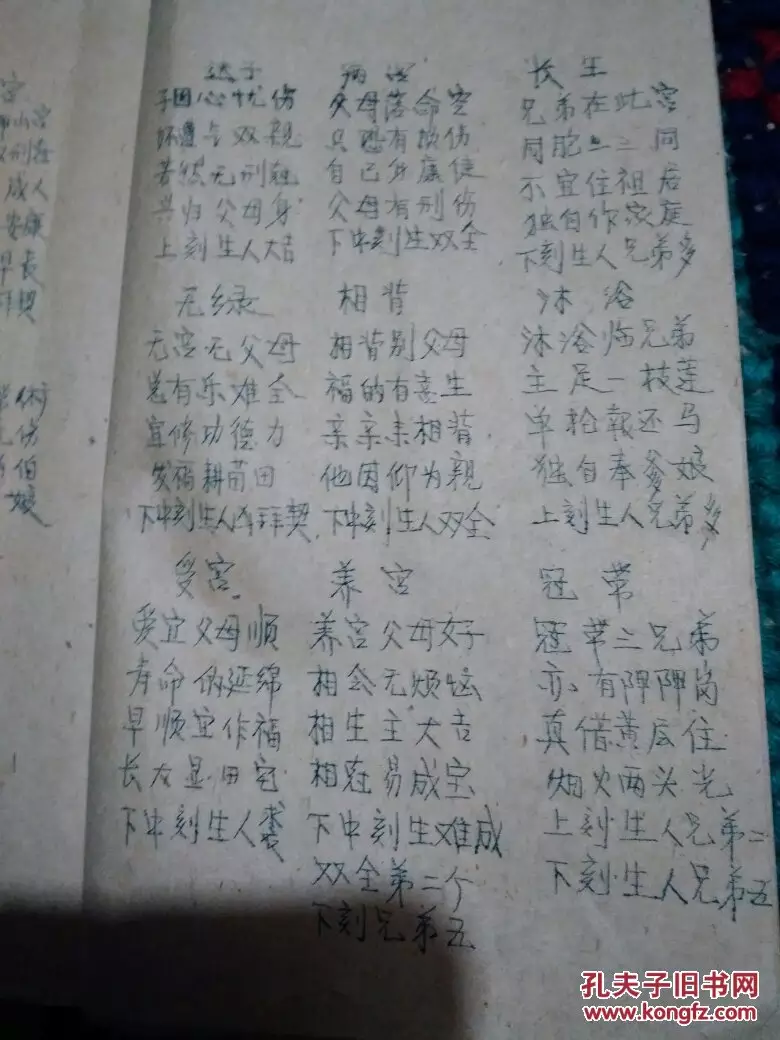 长生
兄弟在此宫
同胞二三同
不宜住祖居
独自作家庭
下刻生人兄弟多
父母落命宫
只恐有损伤
自己身康健
父母有刑伤
下中刻生双全
子 心忧伤
双亲
若然无刑
共归父母身
上刻生人大吉
无绿
无宫无父母
总有乐难全
宜修功德力
发福耕苗田
下中刻生人凶拜契
相背
相背别父母
福的有 生
亲亲未相背
他因仰为亲
下中刻生人双全
沐浴
沐浴临兄弟
主足一枝莲
单枪報还马
独自奉爹娘
上刻生人兄弟多
受宫
受宜父母顺
寿命的延绵
早顺宜作福
长左显田宅
下中刻生人
养宫
养宫父母好
相会无烦恼
相生主大吉
相冠易成宝
下中刻生难成
双全第二个
下刻兄弟五
冠带
冠带三兄弟
亦有阵阵岗
真借黄后住
烟火两头光
上刻生人兄弟二
下刻生人兄弟五
宫
成人
安康
早长
伤
伯
娘
孔夫子旧书网
www.kongfz.com